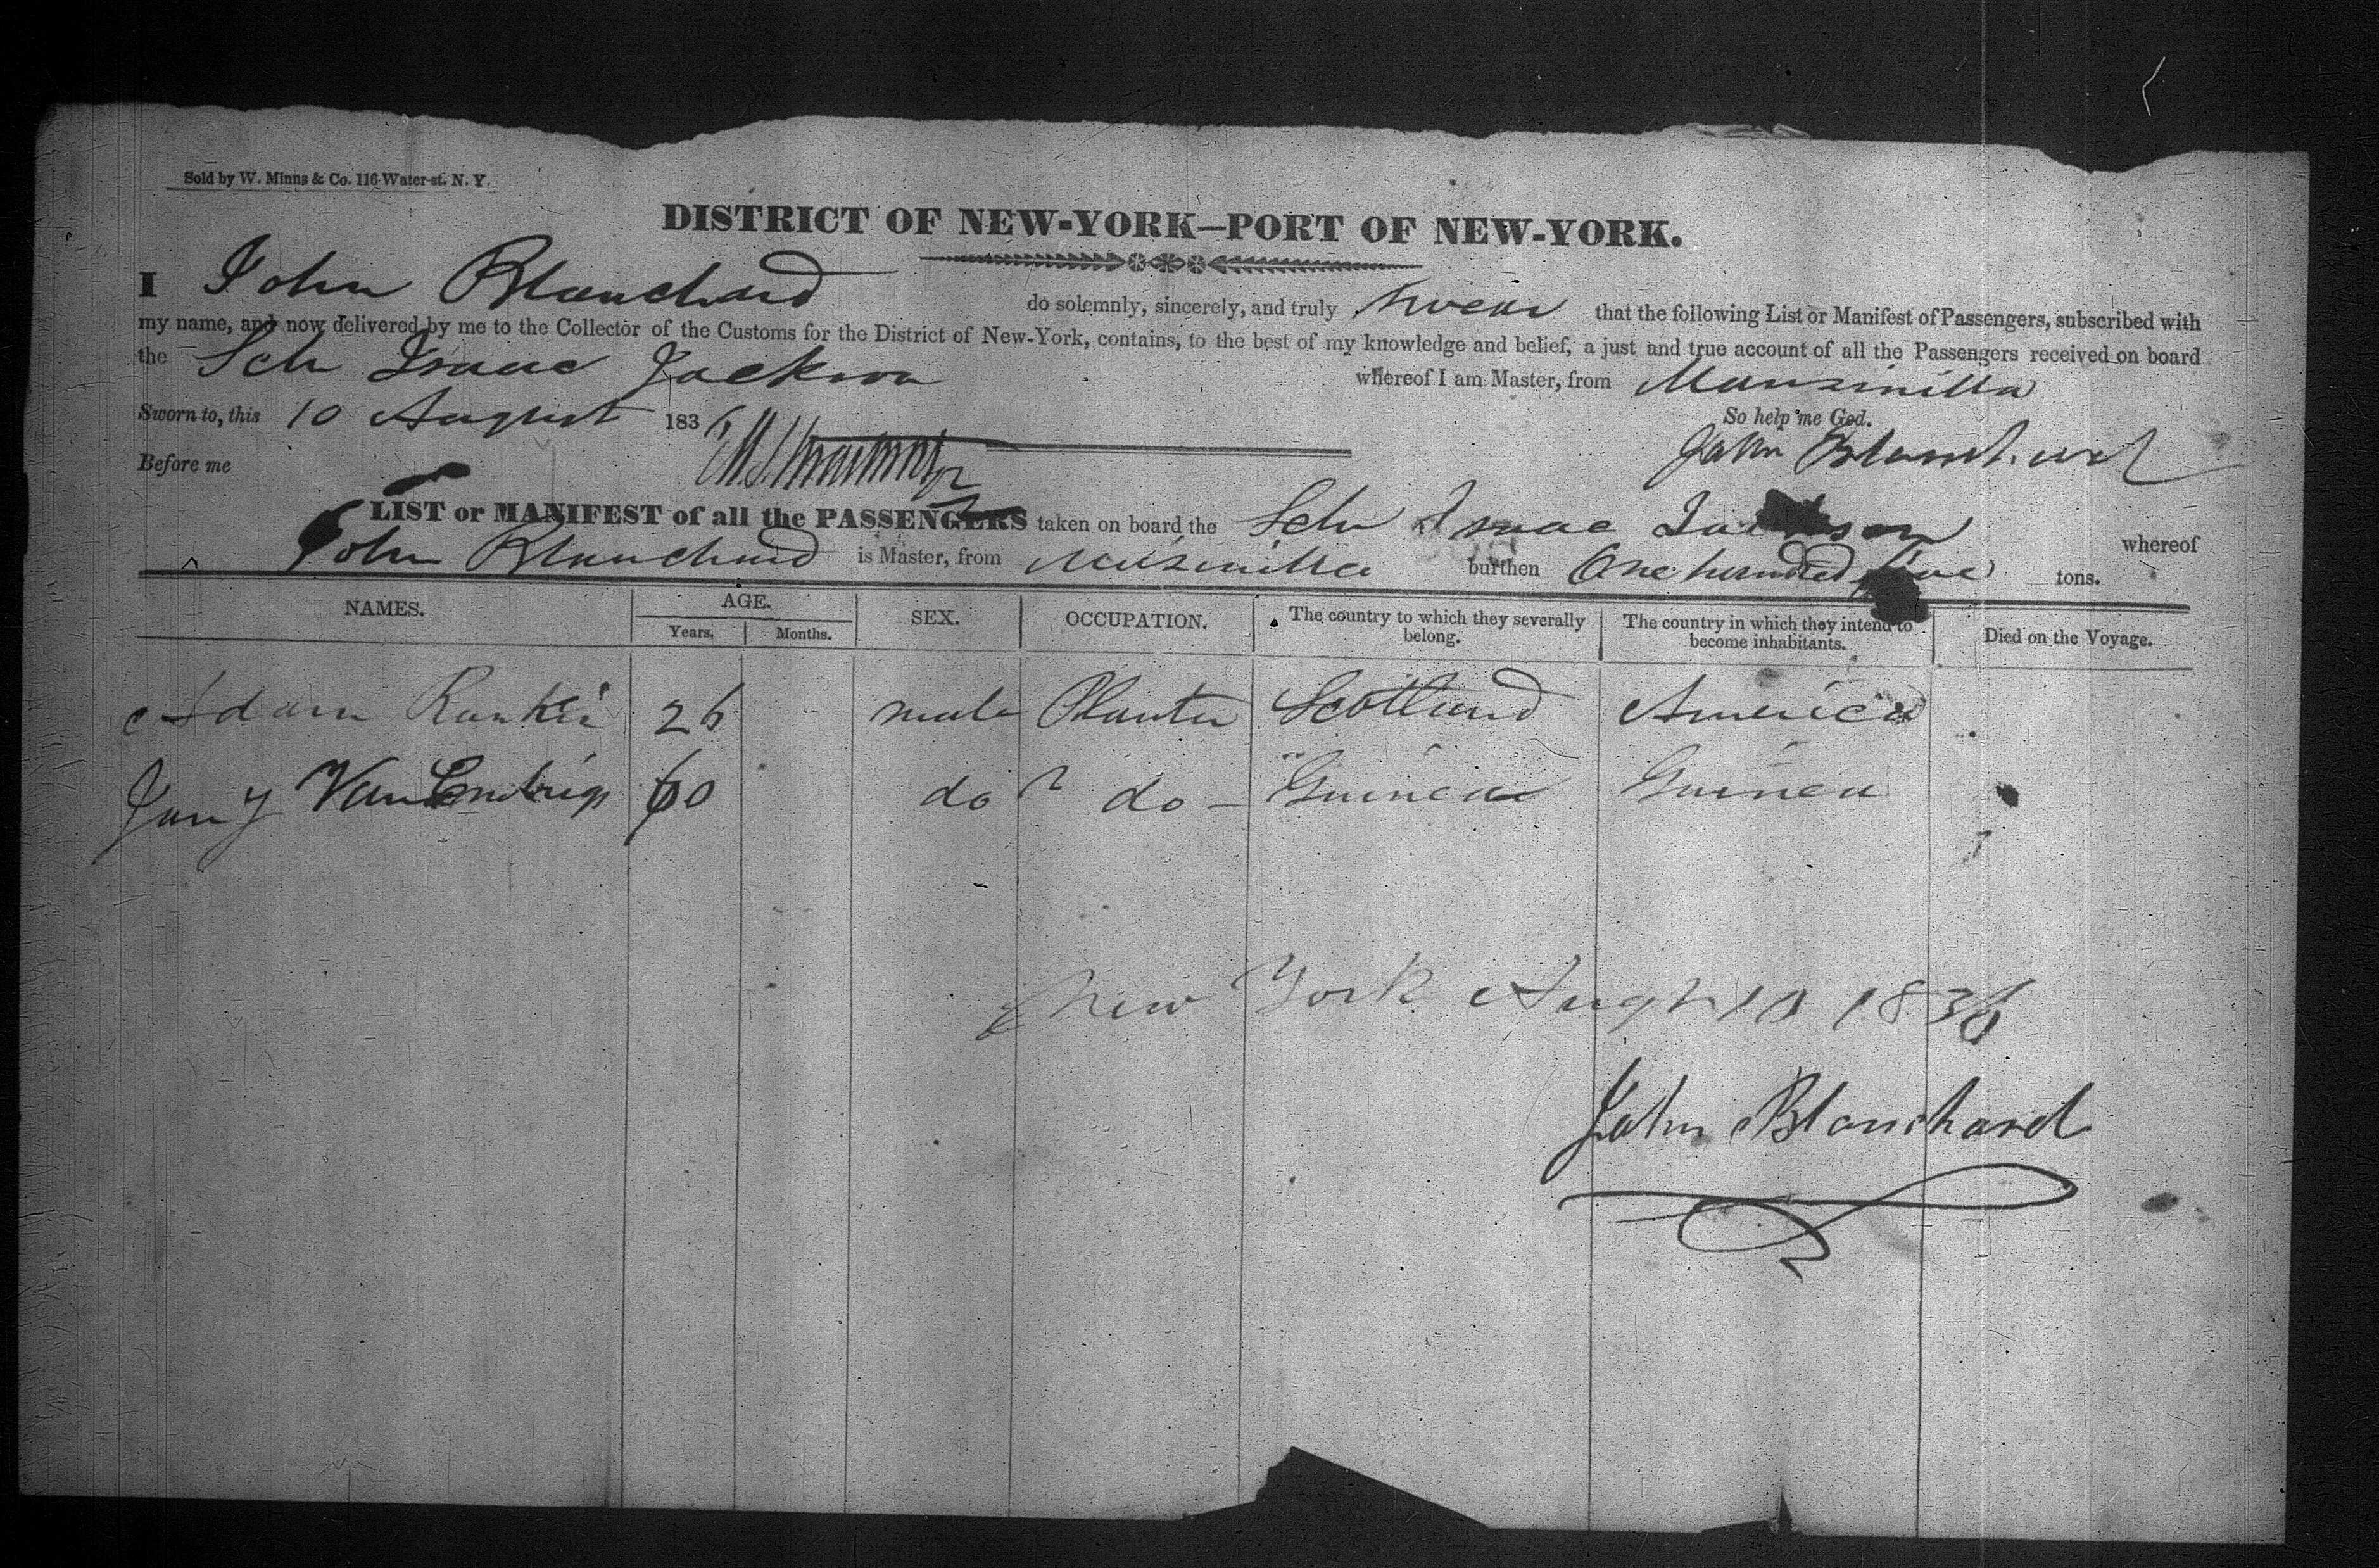 Sold by W. Minns & Co. 116 Water-st. N. Y.
DISTRICT OF NEW-YORK—PORT OF NEW-YORK.
I John Blanchard do solemnly, sincerely, and truly swear that the following List or Manifest of Passengers, subscribed with
my name, and now delivered by me to the Collector of the Customs for the District of New-York, contains, to the best of my knowledge and belief, a just and true account of all the Passengers received on board
the Sch Isaac Jackson whereof I am Master, from Mansinilla
Sworn to, this 10 August 1836 So help me God.
Before me John Blanchard
LIST or MANIFEST of all the PASSENGERS taken on board the Sch Isaac Jackson whereof
John Blanchard is Master, from burthen One hundred five tons.
NAMES. AGE. SEX. OCCUPATION. The country to which they severally belong. The country in which they intend to become inhabitants. Died on the Voyage.
Years. Months.
Adam Rankin 26 male Planter Scotland America
Van 60 do do Guinea Guinea
New York Augt 10 1836
John Blanchard